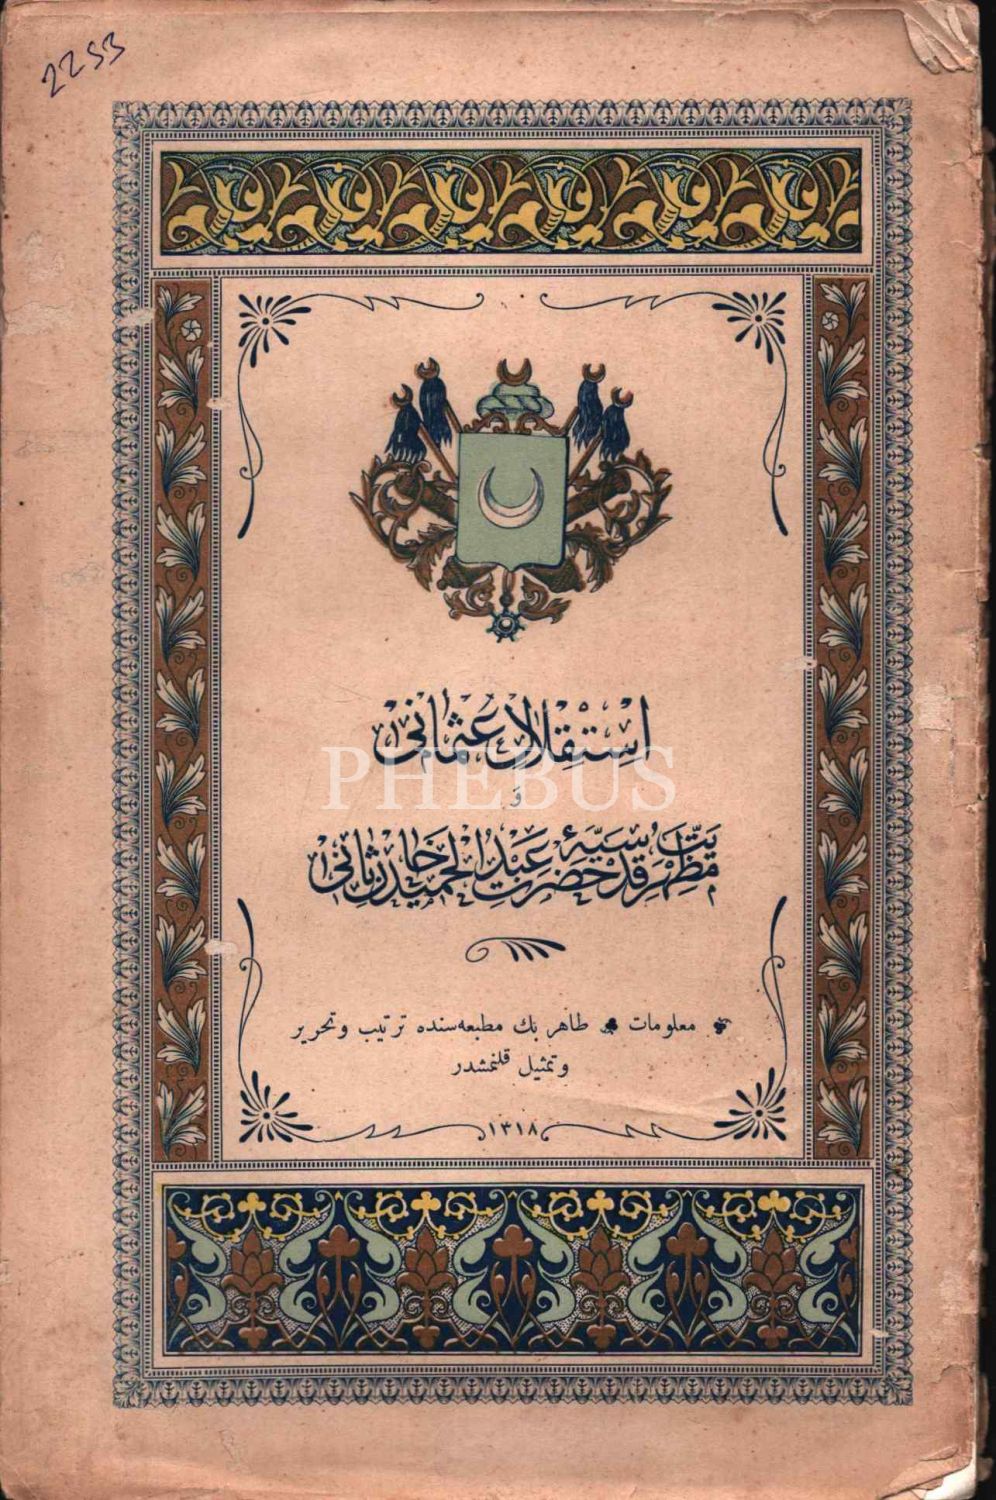 2253
استقلال عثمانى
و
مظهريت قدسيهٔ حضرت عبدالحميد خان ثانى
معلومات طاهر بك مطبعه‌سنده ترتيب وتحرير
وتمثيل قلنمشدر
١٣١٨
PHEBUS